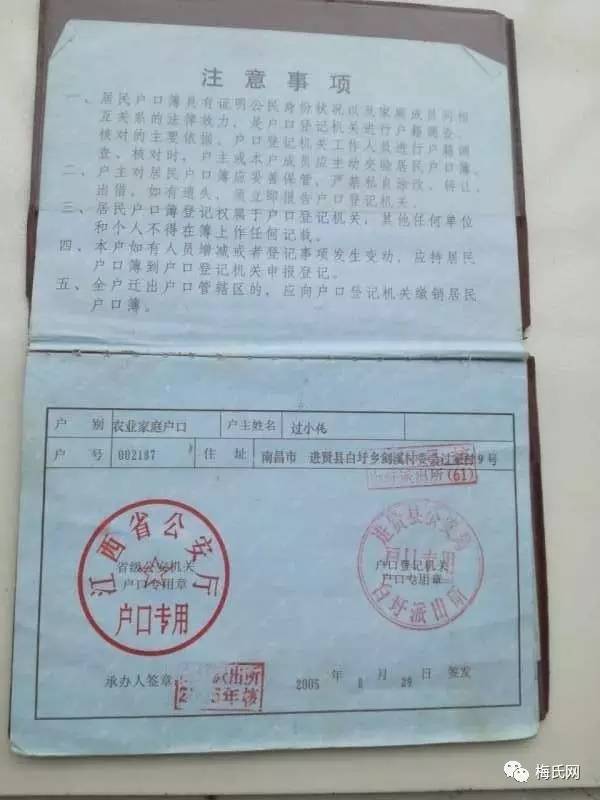 注意事项
一、居民户口簿具有证明公民身份状况以及家庭成员间相
互关系的法律效力，是户口登记机关进行户籍调查、
核对的主要依据。户口登记机关工作人员进行户籍调
查、核对时，户主或本户成员应主动交验居民户口簿。
二、户主对居民户口簿应妥善保管，严禁私自涂改、转让、
出借，如有遗失，须立即报告户口登记机关。
三、居民户口簿登记权属于户口登记机关，其他任何单位
和个人不得在簿上作任何记载。
四、本户如有人员增减或者登记事项发生变动，应持居民
户口簿到户口登记机关申报登记。
五、全户迁出户口管辖区的，应向户口登记机关缴销居民
户口簿。
户别 农业家庭户口 户主姓名 过小伟
户号 002187 住址 南昌市 进贤县白圩乡剑溪村委会过家村9号
白圩派出所(61)
江西省公安厅
户口专用
省级公安机关
户口专用章
进贤县公安局
户口专用
白圩派出所
户口登记机关
户口专用章
承办人签章
出所
2005 年 8 月 29 日 签发
梅氏网